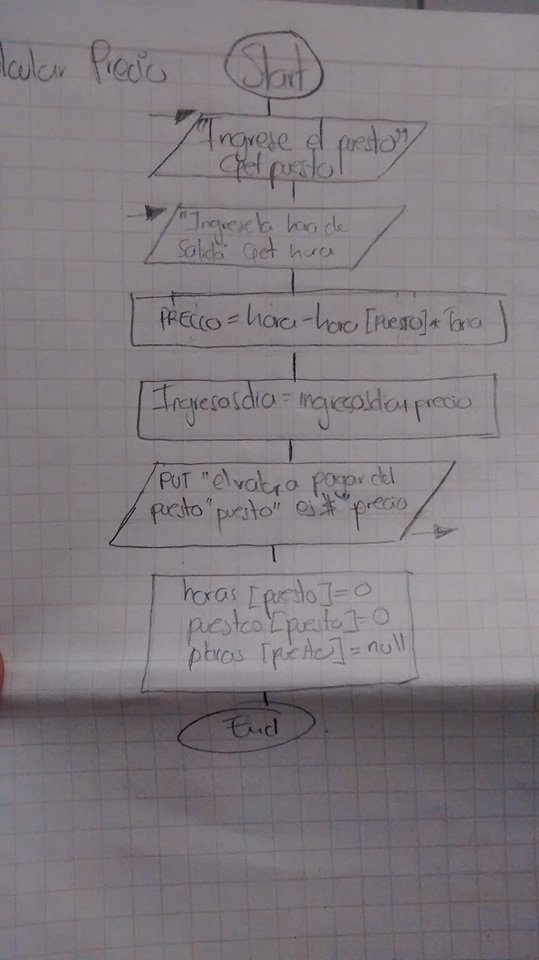 lcular Precio
Start
"Ingrese el puesto"
Get puesto
"Ingrese la hora de
Salida" Get hora
PRECIO = hora - hora [puesto] *
Ingresosdia = ingresosdia + precio
PUT "el valor a pagar del
puesto" puesto" es $" precio
horas [puesto] = 0
puestos [puesto] = 0
placas [puesto] = null
End